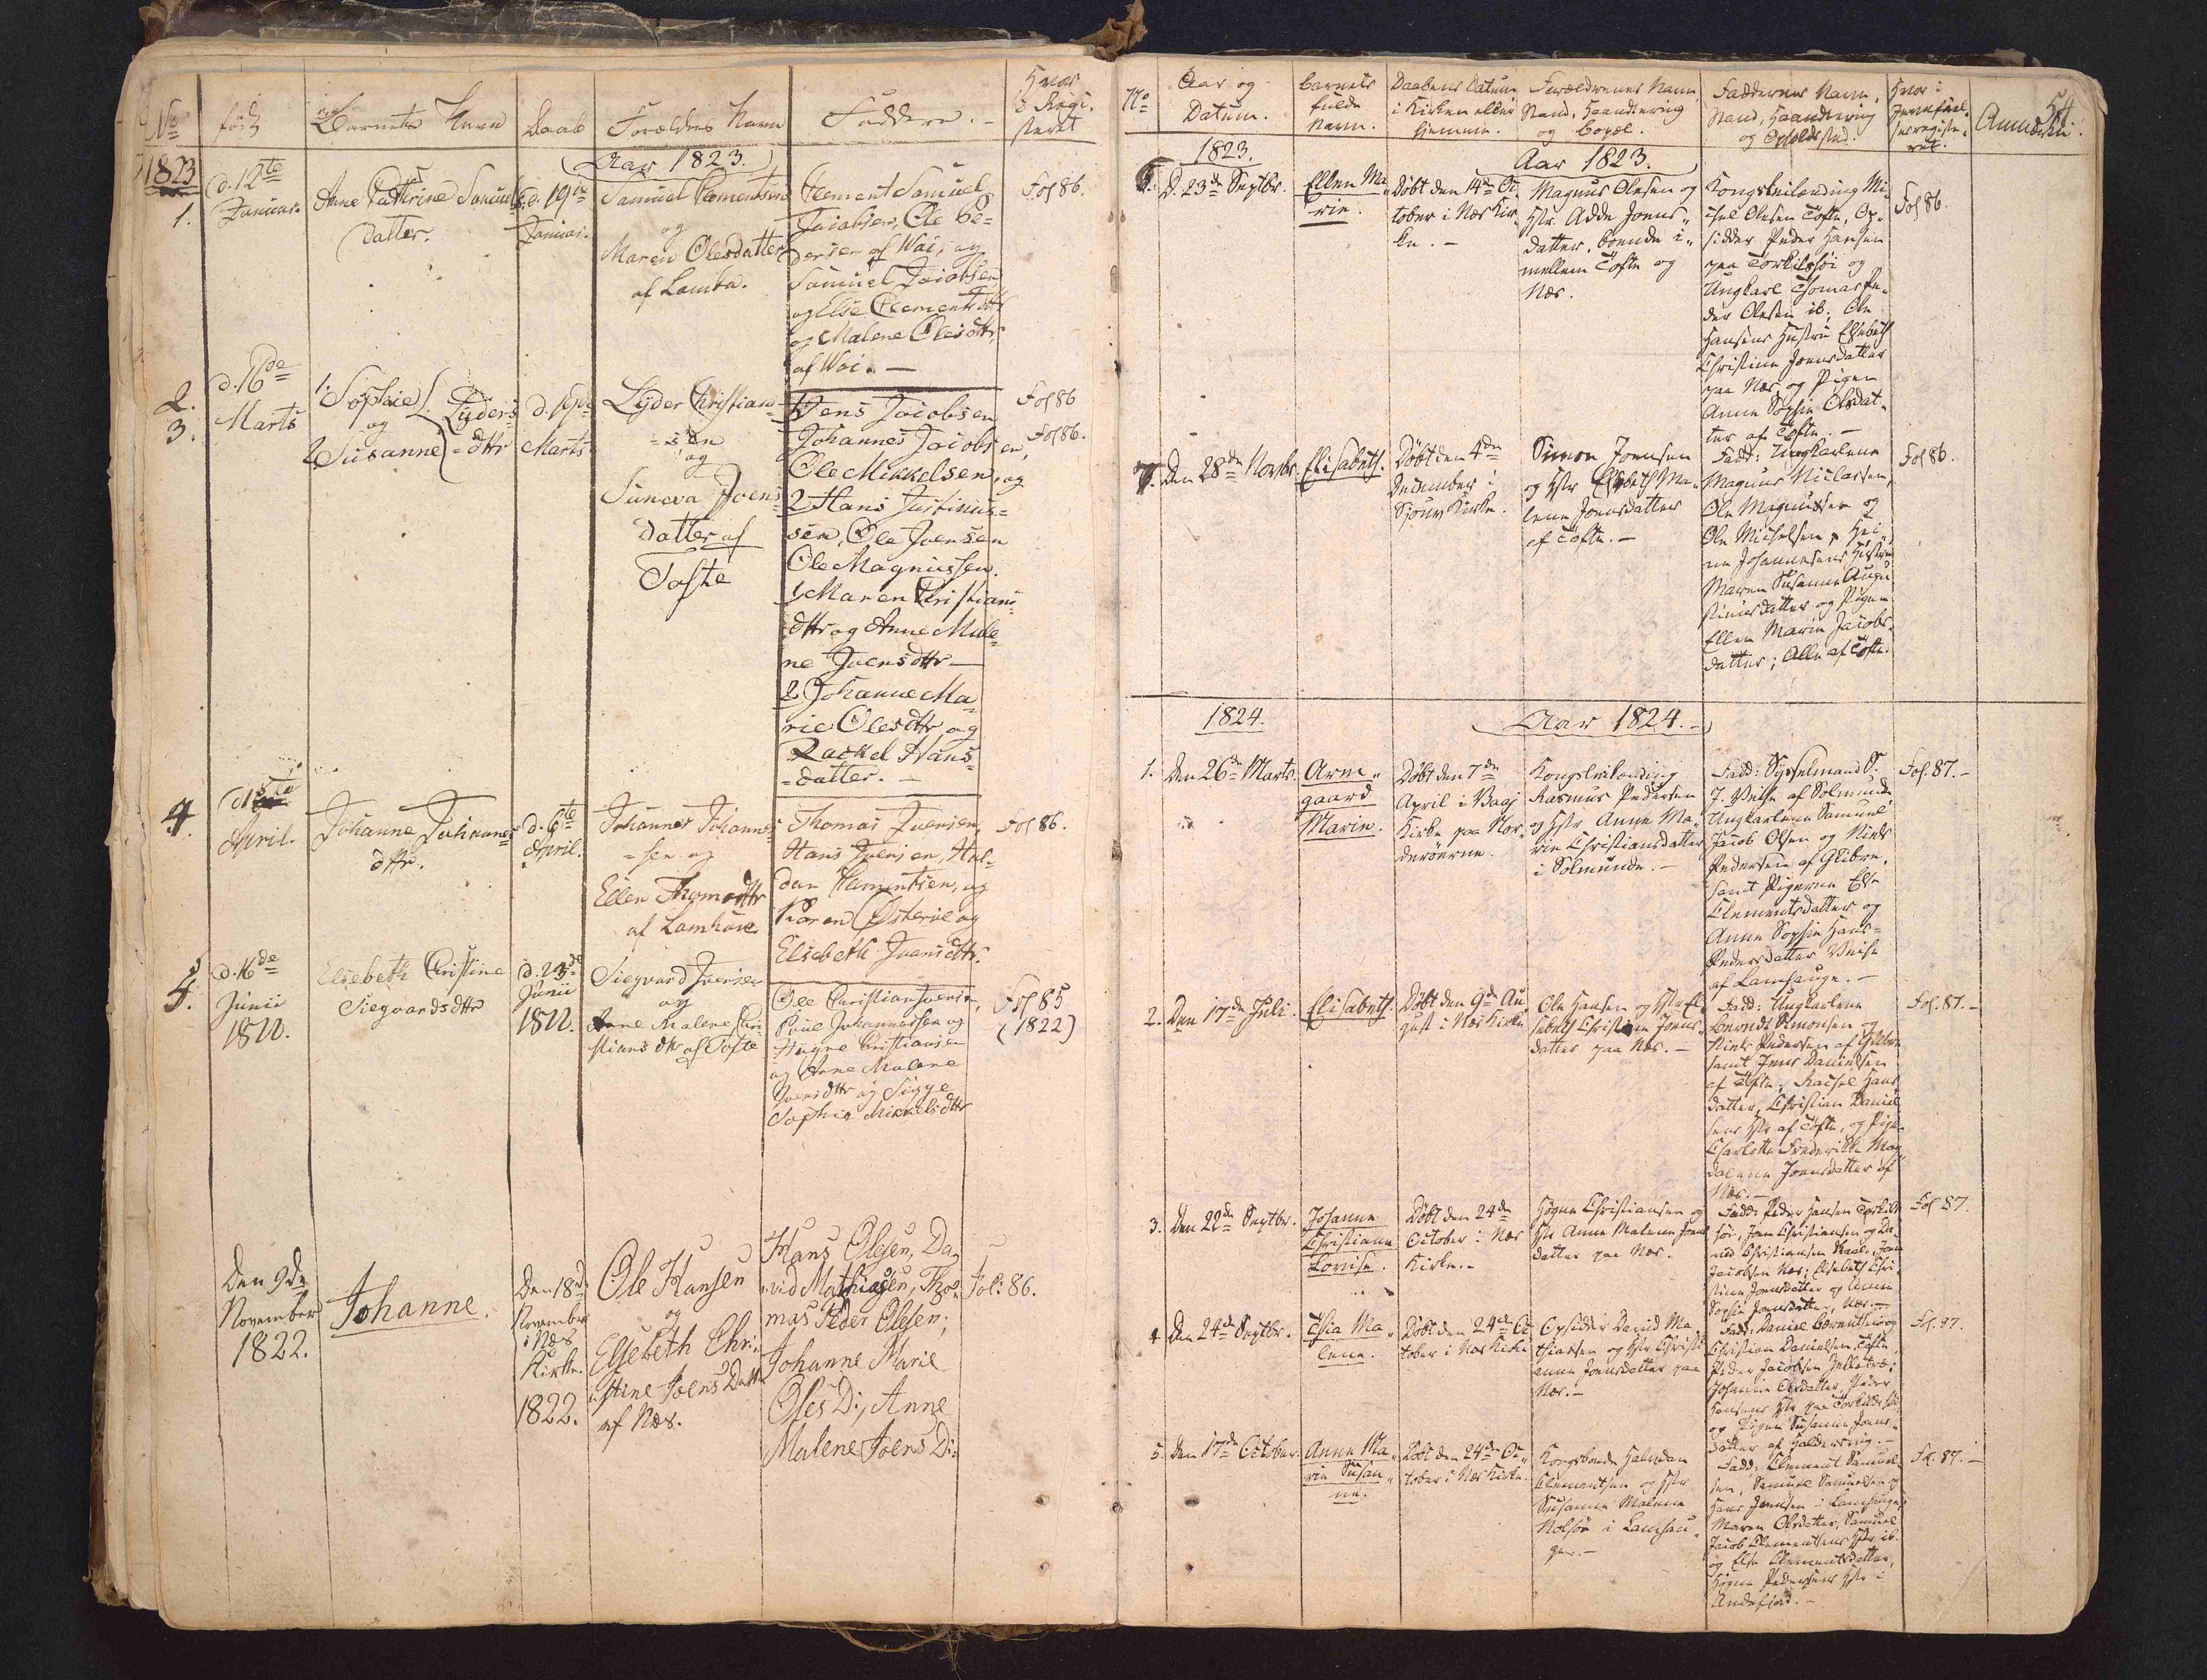 No
født
Barnets Navn
Daab
Forældres Navn
Faddere.
Hvor
i Regi-
steret
Aar 1823.
1823
1.
d. 12te
Januar.
Anne Cathrine Samuels
datter.
d. 19de
Januar.
Samuel Clementsen
og
Maren Olesdatter
af Lamba.
Clement Samuel
Jacobsen, Ole Pe-
dersen af Wai, og
Samuel Jacobsen
og Else Clementsdttr
og Malene Olesdttr,
af Wai. —
Fol 86.
2.
3.
d. 16de
Marts
1. Sophie
og
2 Susanne
Lyders
= dttr
d. 19de
Marts
Lyder Christian-
= sen
og
Suneva Joens
datter af
Tofte
1 Jens Jacobsen
Johannes Jacobsen,
Ole Mikkelsen, og
2 Hans Justinus=
sen, Ole Joensen
Ole Magnussen.
1 Maren Christians=
dttr og Anne Male=
ne Joensdttr —
2 Johanne Ma=
rie Olesdttr og
Rackel Hans=
= datter. —
Fol 86
Fol 86.
4.
April.
Johanne Johannes=
dttr.
d. 6te
April.
Johannes Johannes
= sen og
Ellen Thomasdttr
af Lamhave
Thomas Joensen,
Hans Joensen, Hal=
dan Clementsen, og
Karen Østerie og
Elsebeth Joensdttr.
Fol 86.
5.
d. 16de
Junii
1822.
Elsebeth Christine
Siegvardsdttr
d. 23de
Junii
1822.
Siegvard Joensen
og
Anne Malene Chri-
stians dttr af Tofte
Ole Christian Joensen,
Poul Johannessen og
Høgne Christiansen
og Anne Malene
Joensdttr og Sigge
Sophie Mikkelsdttr
Fol 85
(1822)
Den 9de
November
1822.
Johanne.
Den 18de
November
i Næs
Kirke.
1822.
Ole Hansen
og
Elsebeth Chri-
stine Joens Datter
af Næs.
Hans Olesen, Da-
vid Mathiasen, Tho-
mas Peder Olesen;
Johanne Marie
Oles D:, Anne
Malene Joens D:
Fol: 86.
No
Aar og
Datum.
Barnets
fulde
Navn.
Daabens Datum
i Kirken eller
hjemme.
Forældrenes Navn,
Stand, Haandtering
og Bopæl.
Faddernes Navn,
Stand, Haandtering
og Opholdsted.
Hvor i
Jevnførel-
sesregiste-
ret.
54
1823.
Aar 1823.
6.
D. 23de Septbr.
Ellen Ma-
rie.
Døbt den 14de Oc-
tober i Næs Kir-
ke. —
Magnus Olesen og
Hstr Adde Joens-
datter, boende i-
mellem Tofte og
Næs.
Kongsleilending Mi-
chel Olesen Tofte, Op-
sidder Peder Hansen
paa Torkilshøi og
Ungkarl Thomas Pe-
der Olesen ib: Ole
Hansens Hustru Elsebeth
Christine Joensdatter
paa Næs og Pigen
Anne Sophie Olsdat-
ter af Tofte. —
Fol 86.
7.
Den 28de Novbr.
Elisabeth.
Døbt den 4de
December i
Sjouv Kirke.
Simon Joensen
og Hstr Elsbeth Ma-
lene Joensdatter
af Tofte. —
Fadd: Ungkarlene
Magnus Niclassen,
Ole Magnussen og
Ole Michelsen,
Johannesens Hustru
Maren Susanne Augu
stinusdatter og Pigen
Ellen Marie Jacobs-
datter; Alle af Tofte.
Fol 86.
1824.
Aar 1824. —
1.
Den 26de Marts.
Arm-
gaard
Marie.
Døbt den 7de
April i Vaaj
Kirke paa Nor-
derøerne.
Kongsleilending
Rasmus Pedersen
og Hstr Anne Ma-
rie Christiansdatter
i Solmunde. —
Fadd: Sysselmand S:
J. Weihe af Solmunde,
Ungkarlene Samuel
Jacob Olsen og Niels
Pedersen af Glibre,
samt Pigerne Else
Clementsdatter og
Anne Sophie Hans-
Pedersdatter Weihe
af Lamhauge. —
Fol. 87. —
2.
Den 17de Juli.
Elisabeth.
Døbt den 9de Au-
gust i Næs Kirke
Ole Hansen og Hstr El-
sebeth Christine Joens-
datter paa Næs. —
Fadd: Ungkarlene
Berendt Simonsen og
Niels Pedersen af Glibre
samt Jens Danielsen
af Tofte; Rachel Hans
datter, Christian Daniel
sens Hstr af Tofte, og Pigen
Charlotte Frederikke Mag-
dalene Joensdatter af
Næs. —
Fol. 87. —
3.
Den 22de Septbr.
Johanne
Christiane
Lovise.
Døbt den 24de
October i Næs
Kirke. —
Høgne Christiansen og
Hstr Anne Malene Joens
datter paa Næs.
Fadd: Peder Hansen Torkils
høi, Joen Christiansen og Da-
vid Christiansen Skaale, Joen
Jacobsen Næs; Elsebeth Chri-
stine Joensdatter og Anne
Sophie Joensdatter, Næs. —
Fol 87.
4
Den 24de Septbr.
Thia Ma-
lene.
Døbt den 24de Oc
tober i Næs Kirke
Opsidder David Ma-
thiassen og Hstr Christi
anne Joensdatter paa
Næs. —
Fadd: Daniel Berentsen og
Christian Danielsen, Tofte,
Peder Jacobsen
Johanne Olsdatter, Peder
Hansens Hstr paa Torkilshøi
og Pigen Susanne Joens-
datter af Halderviig. —
Fol. 87.
5.
Den 17de October.
Anne Ma-
rie Susan-
ne.
Døbt den 24de Oc-
tober i Næs Kirke.
Kongsbonde Haldan
Clementsen og Hstr
Susanne Malene
Nolsøe i Lamhau-
ge. —
Fadd: Clement Samuel-
sen, Samuel Samuelsen og
Hans Joensen i Lamhauge,
Maren Olsdatter, Samuel
Jacob Clementsens Hstr ib:
og Else Clementsdatter,
Høgne Pedersens Hstr i
Andefjord. —
Fol. 87. —